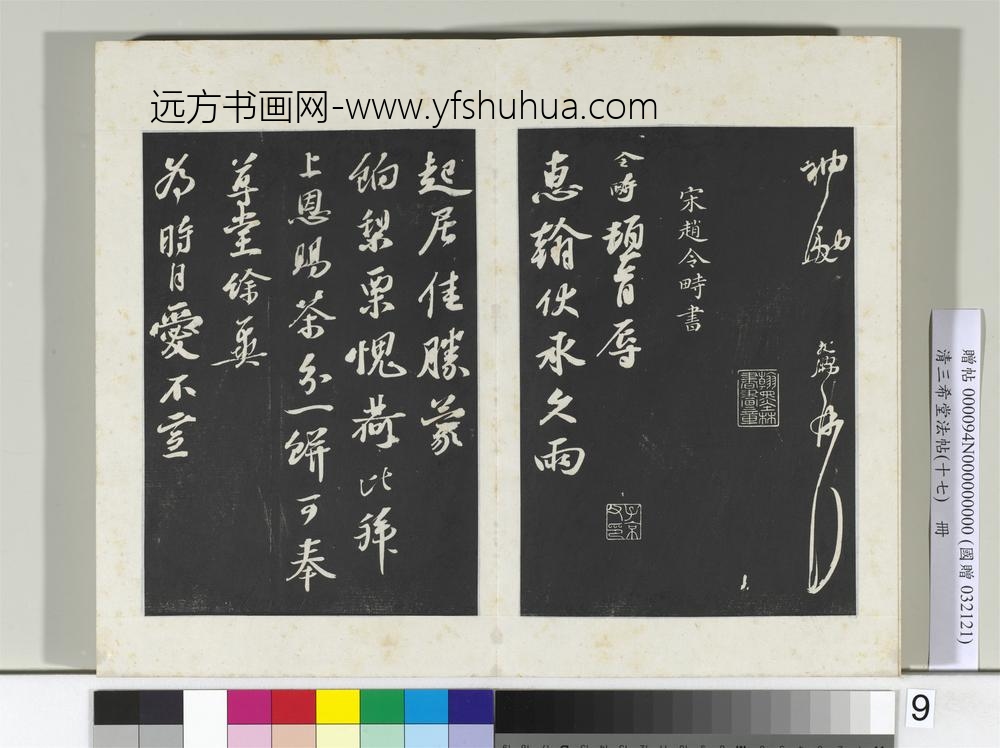 远方书画网-www.yfshuhua.com
宋趙令畤書
翰墨林書畫章
令畤頓首辱
子京父印
惠翰伏承久雨
起居佳勝蒙
餉梨栗愧荷比拜
上恩賜茶分一餅可奉
尊堂餘冀
為時自愛不宣
贈帖 000094N000000000 (國贈 032121)
清三希堂法帖(十七) 冊
9